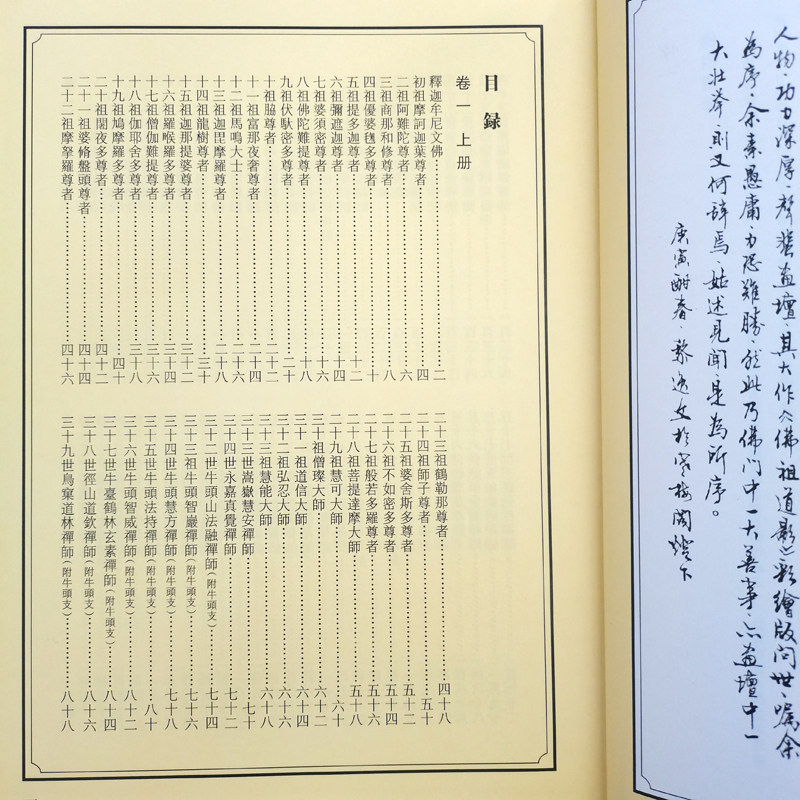 人物、功力深厚、聲蜚畫壇、其大作《佛祖道影》彩繪版問世、囑余
為序、余素愚庸、力恐難勝、然此乃佛門中一大善事、亦畫壇中一
大壯舉、則又何辭焉、姑述見聞、是為所序。
庚寅酣春、黎逸文於紫梅閣燈下
目錄
卷一 上册
釋迦牟尼文佛……二
初祖摩訶迦葉尊者……四
二祖阿難陀尊者……六
三祖商那和修尊者……八
四祖優婆毱多尊者……十
五祖提多迦尊者……十二
六祖彌遮迦尊者……十四
七祖婆須密尊者……十六
八祖佛陀難提尊者……十八
九祖伏馱密多尊者……二十
十祖脇尊者……二十二
十一祖富那夜奢尊者……二十四
十二祖馬鳴大士……二十六
十三祖迦毘摩羅尊者……二十八
十四祖龍樹尊者……三十
十五祖迦那提婆尊者……三十二
十六祖羅喉羅多尊者……三十四
十七祖僧伽難提尊者……三十六
十八祖伽耶舍多尊者……三十八
十九祖鳩摩羅多尊者……四十
二十祖闍夜多尊者……四十二
二十一祖婆脩盤頭尊者……四十四
二十二祖摩拏羅尊者……四十六
二十三祖鶴勒那尊者……四十八
二十四祖師子尊者……五十
二十五祖婆舍斯多尊者……五十二
二十六祖不如密多尊者……五十四
二十七祖般若多羅尊者……五十六
二十八祖菩提達摩大師……五十八
二十九祖慧可大師……六十
三十祖僧璨大師……六十二
三十一祖道信大師……六十四
三十二祖弘忍大師……六十六
三十三祖慧能大師……六十八
三十三世嵩嶽慧安禪師……七十
三十四世永嘉真覺禪師……七十二
三十二世牛頭山法融禪師(附牛頭支)……七十四
三十三祖牛頭智巖禪師(附牛頭支)……七十六
三十四世牛頭慧方禪師(附牛頭支)……七十八
三十五世牛頭法持禪師(附牛頭支)……八十
三十六世牛頭智威禪師(附牛頭支)……八十二
三十七世牛臺鶴林玄素禪師(附牛頭支)……八十四
三十八世徑山道欽禪師(附牛頭支)……八十六
三十九世鳥窠道林禪師(附牛頭支)……八十八